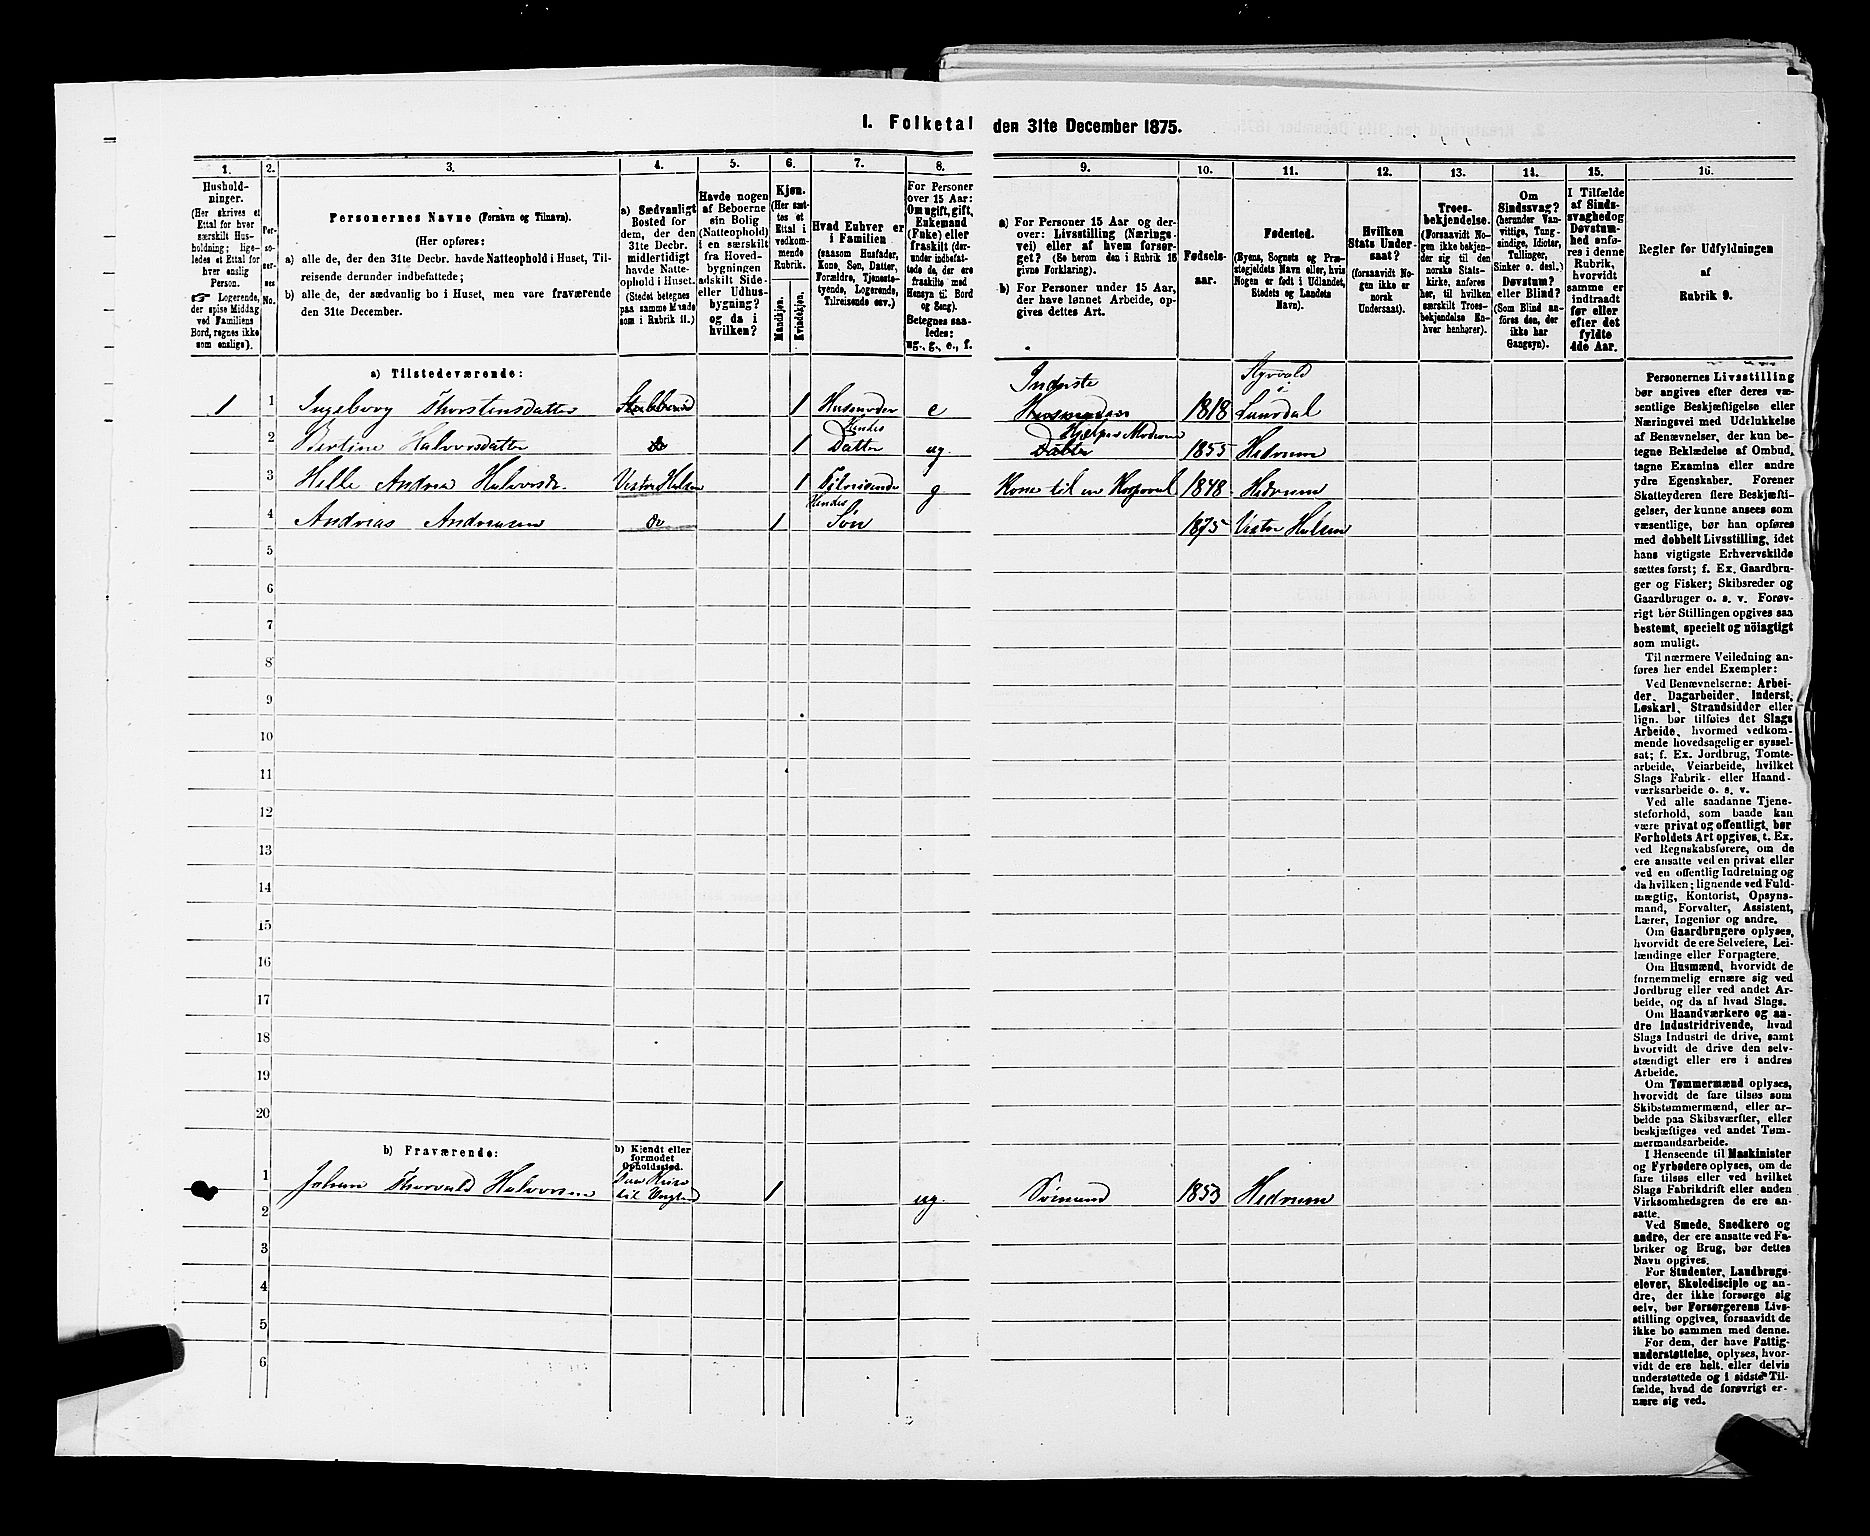 I. Folketal den 31te December 1875.
1. 2. 3. 4. 5. 6. 7. 8. 9. 10. 11. 12. 13. 14. 15. 16.
Hushold-
ninger.
(Her skrives et
Ettal for hver
særskilt Hus-
holdning; lige-
ledes et Ettal
for hver
enslig
Person.
☞ Logerende,
der spise Middag
ved Familiens
Bord, regnes ikke
som enslige).
Per-
so-
ner-
nes
No.
Personernes Navne (Fornavn og Tilnavn).
(Her opføres:
a) alle de, der den 31te Decbr. havde Natteophold i Huset, Til-
reisende derunder indbefattede;
b) alle de, der sædvanlig bo i Huset, men vare fraværende
den 31te December.
a) Sædvanligt
Bosted for
dem, der den
31te Decbr.
midlertidigt
havde Natte-
ophold i Huset.
(Stedet betegnes
paa samme Maade
som i Rubrik 11.)
Havde nogen
af Beboerne
sin Bolig
(Natteophold)
i en særskilt
fra Hoved-
bygningen
adskilt Side-
eller Udhus-
bygning?
og da i
hvilken?
Kjøn.
(Her sæt-
tes et
Ettal i
vedkom-
mende
Rubrik.
Mandkjøn.
Kvindekjøn.
Hvad Enhver er
i Familien
(saasom Husfader,
Kone, Søn, Datter,
Forældre, Tjeneste-
tyende, Logerende,
Tilreisende osv.)
For Personer
over 15 Aar:
Om ugift, gift,
Enkemand
(Enke) eller
fraskilt (der-
under indbefat-
tede de, der ere
fraskilte med
Hensyn til Bord
og Seng).
Betegnes saa-
ledes:
ug., g., e., f.
a) For Personer 15 Aar og der-
over: Livsstilling (Nærings-
vei) eller af hvem forsør-
get? (Se herom den i Rubrik 16
givne Forklaring).
b) For Personer under 15 Aar,
der have lønnet Arbeide, op-
gives dettes Art.
Fødsels-
aar.
Fødested.
(Byens, Sognets og Præ-
stegjeldets Navn eller, hvis
Nogen er født i Udlandet,
Stedets og Landets
Navn).
Hvilken
Stats Under-
saat?
(forsaavidt No-
gen ikke er
norsk
Undersaat).
Troes-
bekjendelse.
(Forsaavidt No-
gen ikke bekjen-
der sig til den
norske Stats-
kirke, anføres
her, til hvilken
særskilt Troes-
bekjendelse En-
hver henhører).
Om
Sindssvag?
(herunder Van-
vittige, Tung-
sindige, Idioter,
Tullinger,
Sinker o. desl.)
Døvstum?
eller Blind?
(Som Blind an-
føres den, der
ikke har
Gangsyn).
I Tilfælde
af Sinds-
svaghed og
Døvstum-
hed anfø-
res i denne
Rubrik,
hvorvidt
samme er
indtraadt
før eller
efter det
fyldte
4de Aar.
Regler for Udfyldningen
af
Rubrik 9.
a) Tilstedeværende:
Inderste
1 1 Ingeborg Thorstensdatter 1 Husmoder e 1818 Laurdal
Hendes Hjælper Moderen
2 Bertine Halvorsdatter do 1 Datter ug. Datter 1855 Hedrum
3 Helle Andrea Halvorsdr. 1 Tilreisende g Kone til en Korporal 1848 Hedrum
Hendes
4 Andreas Andreasen do 1 Søn 1875
5
6
7
8
9
10
11
12
13
14
15
16
17
18
19
20
b) Fraværende:
b) Kjendt eller
formodet
Opholdssted.
1 Johan Thorvald Halvorsen 1 ug. Sømand 1853 Hedrum
2
3
4
5
6
Personernes Livsstilling
bør angives efter deres væ-
sentlige Beskjæftigelse eller
Næringsvei med Udelukkelse
af Benævnelser, der kun be-
tegne Beklædelse af Ombud,
tagne Examina eller andre
ydre Egenskaber. Forener
Skatteyderen flere Beskjæfti-
gelser, der kunne ansees som
væsentlige, bør han opføres
med dobbelt Livsstilling, idet
hans vigtigste Erhvervskilde
sættes først; f. Ex. Gaardbru-
ger og Fisker; Skibsreder og
Gaardbruger o. s. v. Forøv-
rigt bør Stillingen opgives saa
bestemt, specielt og nöiagtigt
som muligt.
Til nærmere Veiledning an-
føres her endel Exempler:
Ved Benævnelserne: Arbei-
der, Dagarbeider, Inderst,
Løskarl, Strandsidder eller
lign. bør tilføies det Slags
Arbeide, hvormed vedkom-
mende hovedsagelig er syssel-
sat; f. Ex. Jordbrug, Tomte-
arbeide, Veiarbeide, hvilket
Slags Fabrik- eller Haand-
værksarbeide o. s. v.
Ved alle saadanne Tjene-
steforhold, som baade kan
være privat og offentligt, bør
Forholdets Art opgives, t. Ex.
ved Regnskabsførere, om de
ere ansatte ved en privat eller
ved en offentlig Indretning og
da hvilken; lignende ved Fuld-
mægtig, Kontorist, Opsyns-
mand, Forvalter, Assistent,
Lærer, Ingeniør og andre.
Om Gaardbrugere oplyses,
hvorvidt de ere Selveiere, Lei-
lændinge eller Forpagtere.
Om Husmænd, hvorvidt de
fornemmelig ernære sig ved
Jordbrug eller ved andet Ar-
beide, og da af hvad Slags.
Om Haandværkere og an-
dre Industridrivende, hvad
Slags Industri de drive, samt
hvorvidt de drive den selv-
stændigt eller ere i andres
Arbeide.
Om Tømmermænd oplyses,
hvorvidt de fare tilsøs som
Skibstømmermænd, eller ar-
beide paa Skibsværfter, eller
beskjæftiges ved andet Tøm-
mermandsarbeide.
I Henseende til Maskinister
og Fyrbødere oplyses, om de
fare tilsøs eller ved hvilket
Slags Fabrikdrift eller anden
Virksomhedsgren de ere an-
satte.
Ved Smede, Snedkere og
andre, der ere ansatte ved Fa-
briker og Brug, bør dettes
Navn opgives.
For Studenter, Landbrugs-
elever, Skoledisciple og an-
dre, der ikke forsørge sig
selv, bør Forsørgerens Livs-
stilling opgives, forsaavidt de
ikke bo sammen med denne.
For dem, der have Fattig-
understøttelse, oplyses, hvor-
vidt de ere helt eller delvis
understøttede og i sidste Til-
fælde, hvad de forøvrigt er-
nære sig ved.